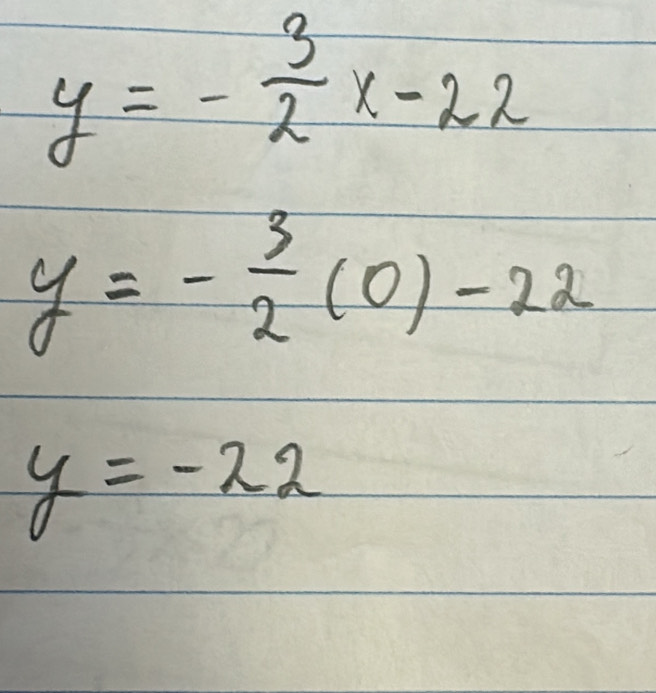 y = - 3/2 x - 22
y = - 3/2 (0) - 22
y = -22